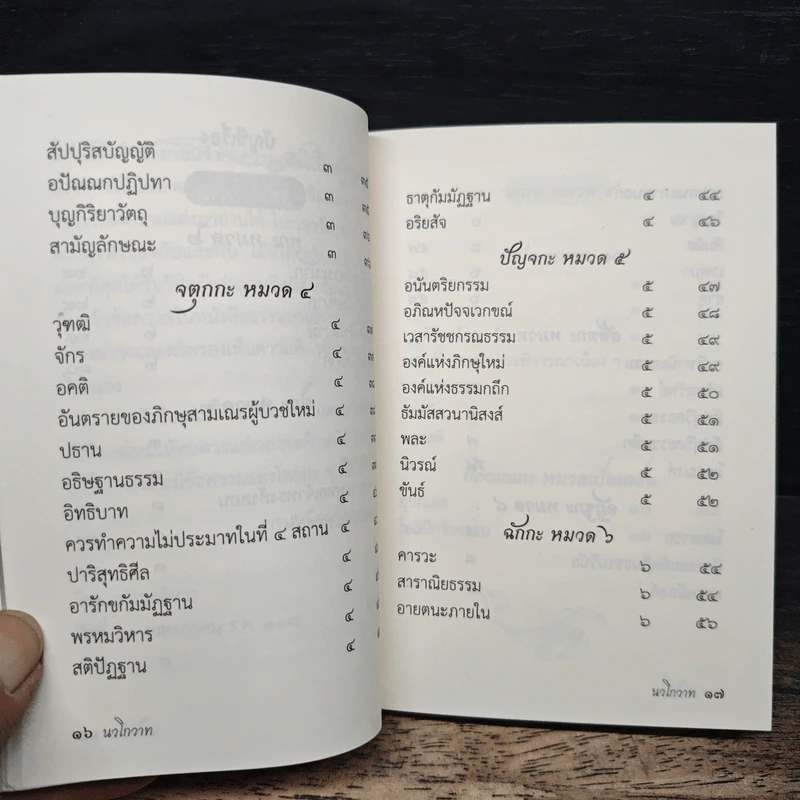 สัปปุริสบัญญัติ ๓ ๓๕
อปัณณกปฏิปทา ๓
บุญกิริยาวัตถุ ๓
สามัญลักษณะ ๓
จตุกกะ หมวด ๔
วุฑฒิ ๔
จักร ๔
อคติ ๔
อันตรายของภิกษุสามเณรผู้บวชใหม่ ๔
ปธาน ๔
อธิษฐานธรรม ๔
อิทธิบาท ๔
ควรทำความไม่ประมาทในที่ ๔ สถาน ๔
ปาริสุทธิศีล ๔
อารักขกัมมัฏฐาน ๔
พรหมวิหาร ๔
สติปัฏฐาน ๔
๑๖ นวโกวาท
ธาตุกัมมัฏฐาน ๔ ๔๔
อริยสัจ ๔ ๔๖
ปัญจกะ หมวด ๕
อนันตริยกรรม ๕ ๔๗
อภิณหปัจจเวกขณ์ ๕ ๔๘
เวสารัชชกรณธรรม ๕ ๔๙
องค์แห่งภิกษุใหม่ ๕ ๔๙
องค์แห่งธรรมกถึก ๕ ๕๐
ธัมมัสสวนานิสงส์ ๕ ๕๑
พละ ๕ ๕๑
นิวรณ์ ๕ ๕๒
ขันธ์ ๕ ๕๒
ฉักกะ หมวด ๖
คารวะ ๖ ๕๔
สาราณิยธรรม ๖ ๕๔
อายตนะภายใน ๖ ๕๖
นวโกวาท ๑๗